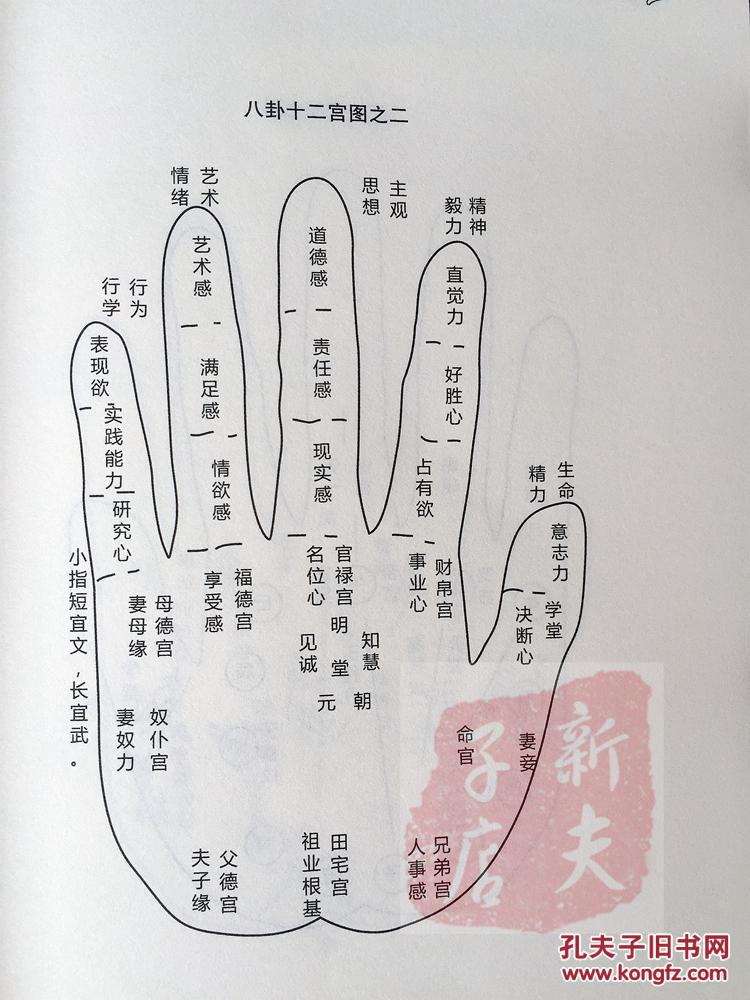 八卦十二宫图之二
艺术
情绪
主观
思想
精神
毅力
行为
行学
生命
精力
艺术感
满足感
情欲感
道德感
责任感
现实感
直觉力
好胜心
占有欲
表现欲
实践能力
研究心
意志力
学堂
决断心
小指短宜文，长宜武。
母德宫
妻母缘
福德宫
享受感
官禄宫
名位心
财帛宫
事业心
明堂元
见诚
知慧
朝
奴仆宫
妻奴力
命官
妻妾
父德宫
夫子缘
田宅宫
祖业根基
兄弟宫
人事感
新夫
子店
孔夫子旧书网
www.kongfz.com